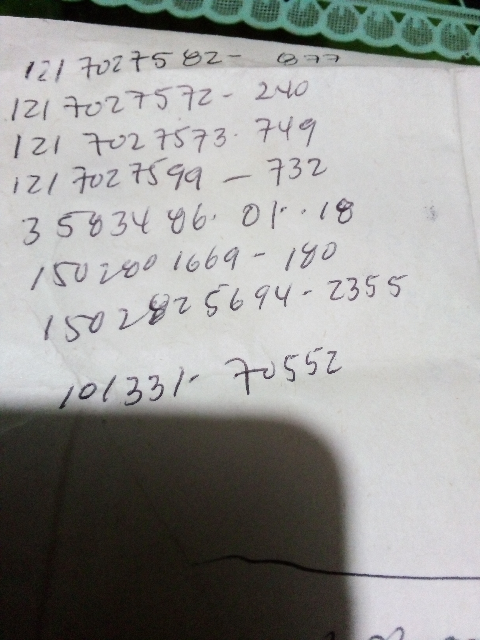 121 7027582- 877
121 7027572- 240
121 7027573. 749
121 7027599 - 732
3583486. 01. . 18
1502801669 - 180
1502825694 - 2355
101331- 70552